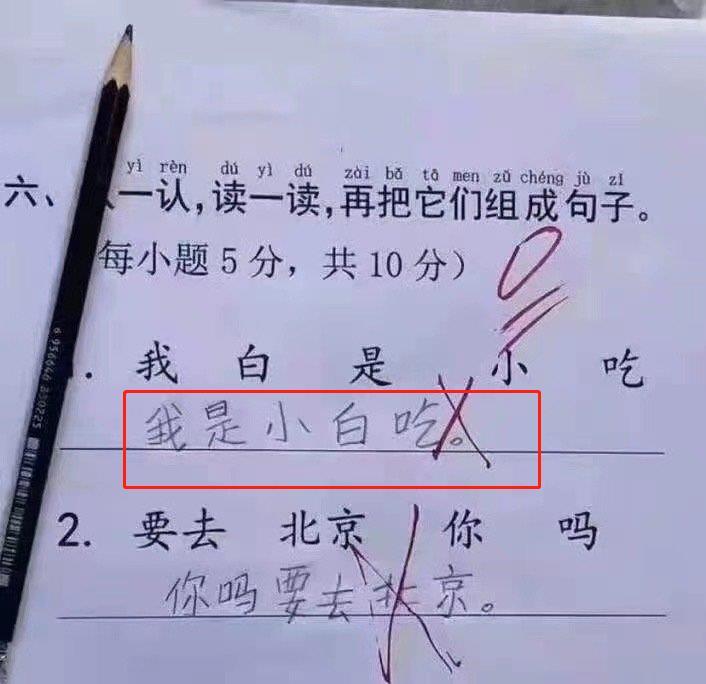 yì rèn dú yì dú zài bǎ tā men zǔ chéng jù zǐ
六、认一认,读一读,再把它们组成句子。
每小题5分，共10分）
0
1. 我 白 是 小 吃
我是小白吃。
2. 要去 北京 你 吗
你吗要去北京。
6 956646 330225